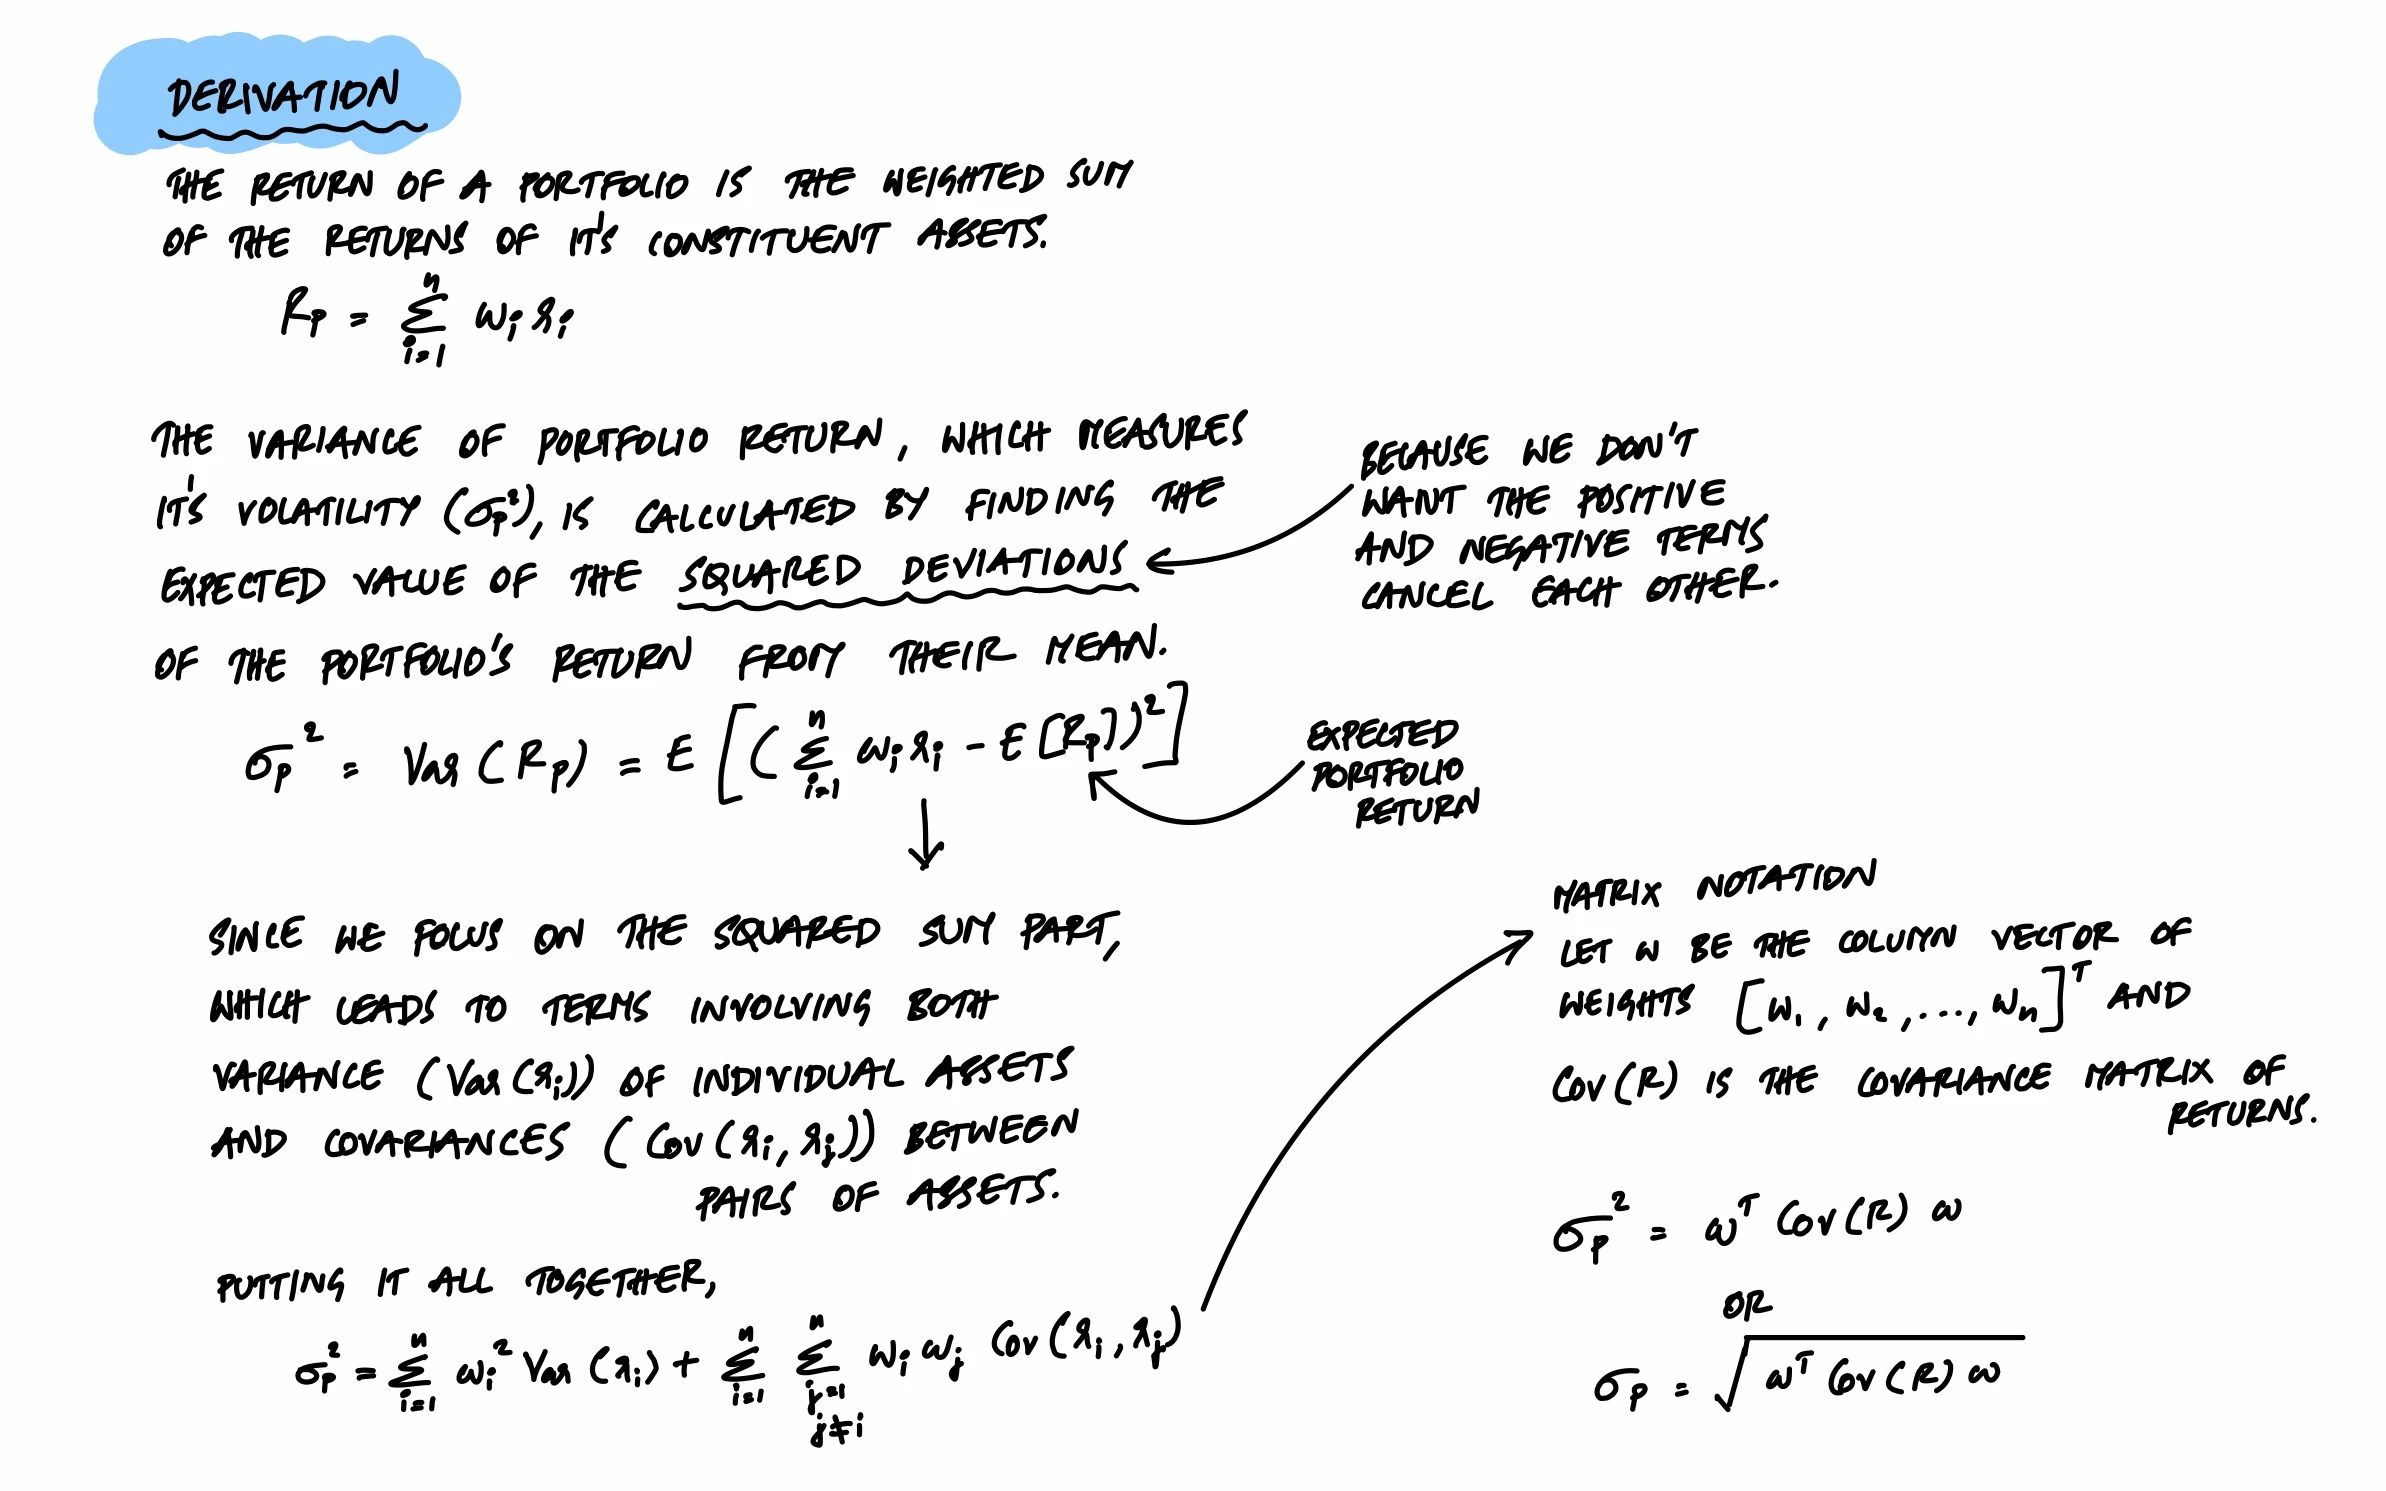 DERIVATION
THE RETURN OF A PORTFOLIO IS THE WEIGHTED SUM
OF THE RETURNS OF IT'S CONSTITUENT ASSETS.
R_P = \sum_{i=1}^{n} w_i r_i
THE VARIANCE OF PORTFOLIO RETURN, WHICH MEASURES
IT'S VOLATILITY (σ_P^2), IS CALCULATED BY FINDING THE
EXPECTED VALUE OF THE SQUARED DEVIATIONS
OF THE PORTFOLIO'S RETURN FROM THEIR MEAN.
BECAUSE WE DON'T
WANT THE POSITIVE
AND NEGATIVE TERMS
CANCEL EACH OTHER.
σ_P^2 = Var(R_P) = E[(\sum_{i=1}^{n} w_i r_i - E[R_P])^2]
EXPECTED
PORTFOLIO
RETURN
SINCE WE FOCUS ON THE SQUARED SUM PART,
WHICH LEADS TO TERMS INVOLVING BOTH
VARIANCE (Var(r_i)) OF INDIVIDUAL ASSETS
AND COVARIANCES (Cov(r_i, r_j)) BETWEEN
PAIRS OF ASSETS.
PUTTING IT ALL TOGETHER,
σ_P^2 = \sum_{i=1}^{n} w_i^2 Var(r_i) + \sum_{i=1}^{n} \sum_{j=1, j≠i}^{n} w_i w_j Cov(r_i, r_j)
MATRIX NOTATION
LET w BE THE COLUMN VECTOR OF
WEIGHTS [w_1, w_2, ..., w_n]^T AND
COV(R) IS THE COVARIANCE MATRIX OF
RETURNS.
σ_P^2 = w^T Cov(R) w
OR
σ_P = \sqrt{w^T Cov(R) w}